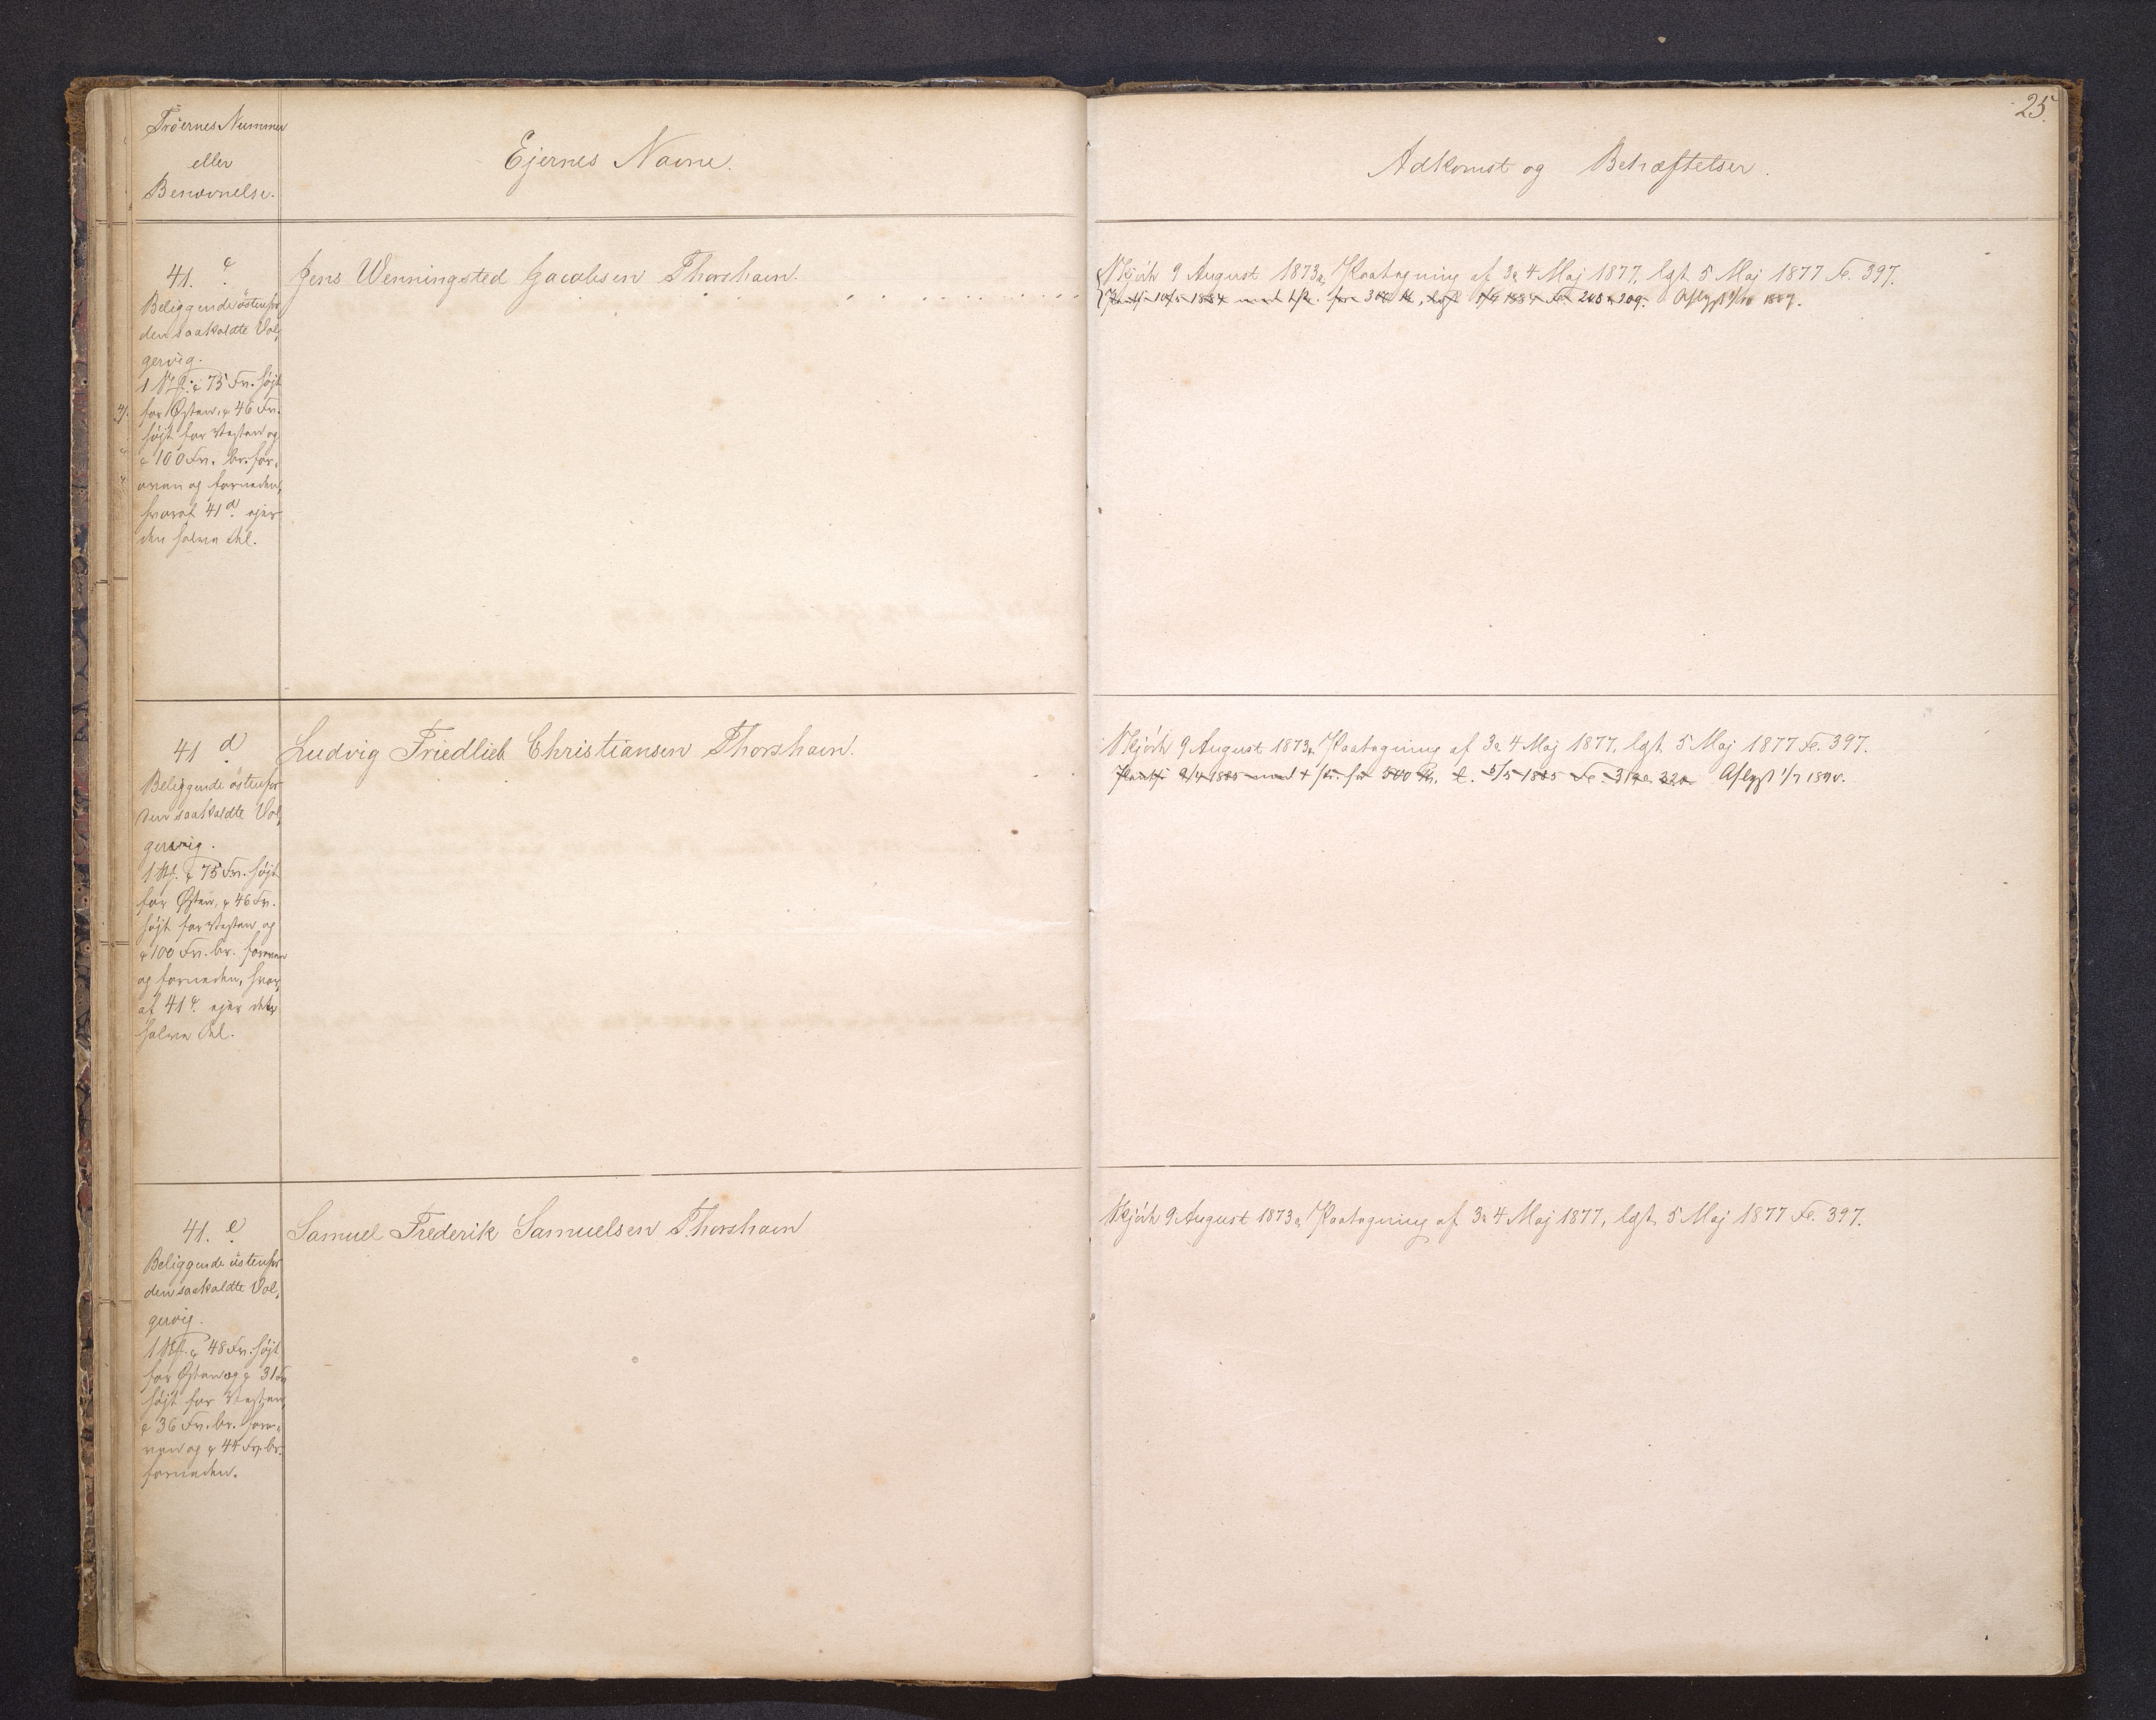 25.
Tröernes Nummer
eller
Benævnelse.
Ejernes Navne.
Adkomst og Behæftelser.
41. c.
Beliggende östenfor
den saakaldte Val,
gervig.
1 Stk. c 75 Fv. höjt
for Østen, c 46 Fv.
höjt for Vesten og
c 100 Fv. br. for,
oven og forneden,
hvoraf 41 d. ejer
den halve Del.
Jens Wenningsted Jacobsen Thorshavn.
Skjöde 9 August 1873 a, Paategning af 3 a 4 Maj 1877, lgst. 5 Maj 1877 Fo. 397.
1884 med for 300 1884 Fo. 208 a 209. Aflyst 1889.
41 d.
Beliggende östenfor
den saakaldte Val,
gervig.
1 Stk. c 75 Fv. höjt
for Østen, c 46 Fv.
höjt for Vesten og
c 100 Fv. br. foroven
og forneden, hvor,
af 41 c. ejer den
halve Del.
Ludvig Friedlieb Christiansen Thorshavn.
Skjöde 9 August 1873 a, Paategning af 3 a 4 Maj 1877, lgst. 5 Maj 1877 Fo. 397.
2/4 1885 med for 500 Kr. l. 5/5 1885 Fo. 319 a 320. Aflyst 1/7 1890.
41. e.
Beliggende östenfor
den saakaldte Val,
gervig.
1 Stk. c 48 Fv. höjt
for Østen og c 31 Fv
höjt for Vesten,
c 36 Fv. br. foro,
ven og c 44 Fv. br.
forneden.
Samuel Frederik Samuelsen Thorshavn
Skjöde 9 August 1873 a, Paategning af 3 a 4 Maj 1877, lgst. 5 Maj 1877 Fo. 397.